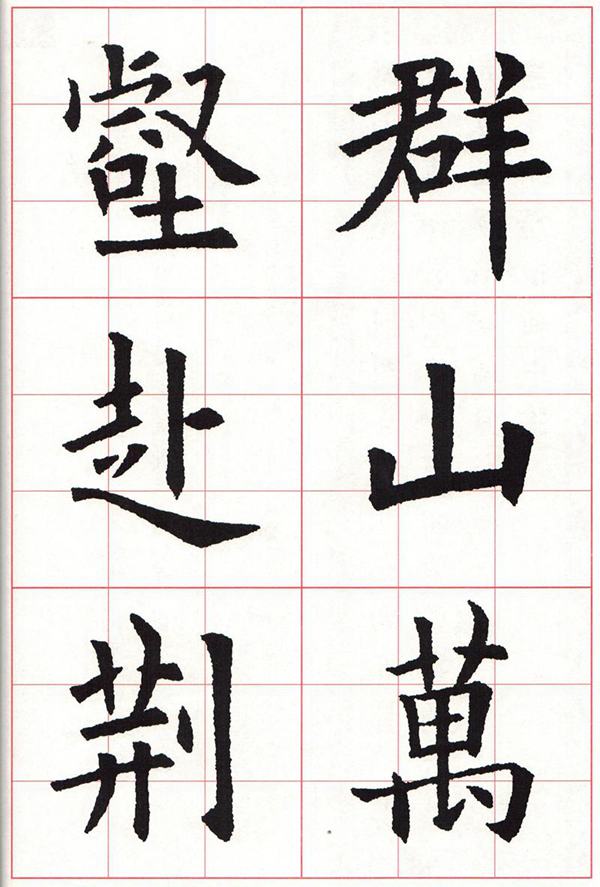 群山萬
壑赴荆